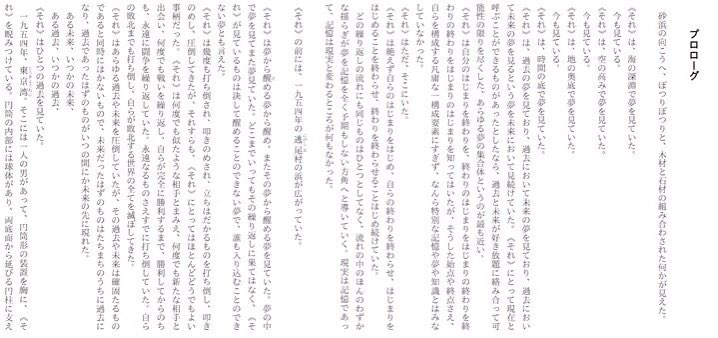 プロローグ
砂浜の向こうへ、ぽつりぽつりと、木材と石材の組み合わされた何かが見えた。
《それ》は、海の深淵で夢を見ていた。
今も見ている。
《それ》は、空の高みで夢を見ていた。
今も見ている。
《それ》は、地の奥底で夢を見ていた。
今も見ている。
《それ》は、時間の底で夢を見ていた。
今も見ている。
《それ》は、過去の夢を見ており、過去において未来の夢を見ており、過去におい
て未来の夢を見るという夢を未来において見続けていた。《それ》にとって現在と
呼ぶことができるものがあったとしたなら、過去と未来が好き放題に絡み合って可
能性の限りを尽くした、あらゆる夢の集合体というのが最も近い。
《それ》は自分のはじまりを終わりを、終わりのはじまりをはじまりの終わりを、終
わりの終わりをはじまりのはじまりを知ってはいたが、そうした始点や終点さえ、
自らを構成する凡庸な一構成要素にすぎず、なんら特別な記憶や夢や知識とはみな
していなかった。
《それ》はただ、そこにいた。
《それ》は絶えず自らのはじまりをはじめ、自らの終わりを終わらせ、はじまりを
はじめることを終わらせ、終わりを終わらせることをはじめ続けていた。
どの繰り返しの流れにも同じものはひとつとしてなく、流れの中のほんのわずか
な揺らぎが夢を記憶を全く予期もしない方角へと導いていく、現実は記憶であっ
て、記憶は現実と変わるところが何もなかった。
《それ》の前には、一九五四年の逃尾村の浜が広がっていた。
《それ》は夢から醒める夢から醒め、またその夢から醒める夢を見ていた。夢の中
で夢を見てまた夢を見ていた。どこまでいってもその繰り返しに果てはなく、《そ
れ》が見ているものは決して醒めることのできない夢で、誰も入り込むことのでき
ない夢とも言えた。
《それ》は幾度も打ち倒され、叩きのめされ、立ちはだかるものを打ち倒し、叩き
のめし、圧倒してきたが、それすらも、《それ》にとってはほとんどどうでもよい
事柄だった。《それ》は何度でも似たような相手とまみえ、何度でも新たな相手と
出会い、何度でも戦いを繰り返し、自らが完全に勝利するまで、勝利してからのち
も、永遠に闘争を繰り返していた。永遠なるものさえすでに打ち倒していた。自ら
の敗北までも打ち倒し、自らが敗北する世界の全てを滅ぼしてきた。
《それ》はあらゆる過去や未来を圧倒していたが、その過去や未来は確固たるもの
であると同時にはかないもので、未来だったはずのものはたちまちのうちに過去に
なり、過去であったはずのものがいつの間にか未来の先に現れた。
ある未来、いつかの未来、
ある過去、いつかの過去、
《それ》はひとつの過去を見ていた。
一九五四年、東京湾。そこには一人の男があって、円筒形の装置を胸に、《そ
れ》を睨みつけている。円筒の内部には球体があり、両底面から延びる円柱に支え